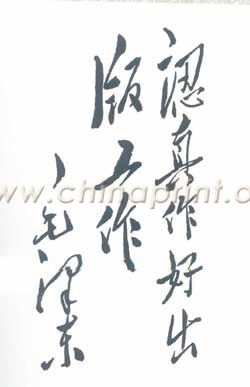 認真作好出
版工作
毛泽东
www.chinaprint.o